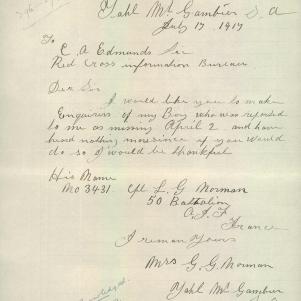 Yahl Mt Gambier S.A
July 17 1917
To
C. A Edmunds Sir
Red Cross information Bureau
Dear Sir
I would like you to make
Enquirers of my Boy who was reported
to me as missing April 2 and have
heard nothing more since if you would
do so I would be thankful
His Name
No 3431 Cpl L. G Norman
50 Battalion
A.I.F
France
I reman Yours
Mrs G. G. Norman
Yahl Mt Gambier